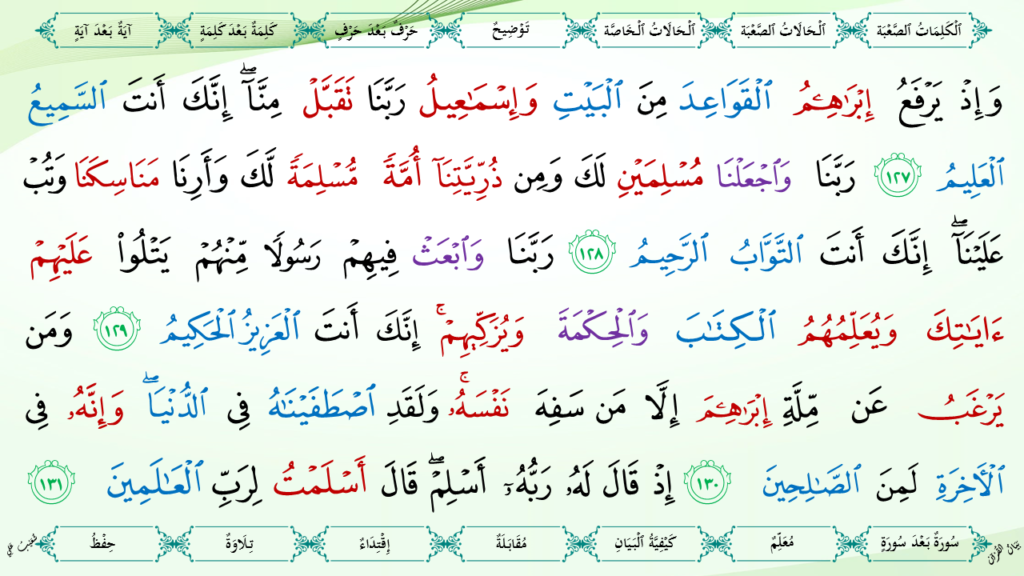 ٱلْكَلِمَاتُ ٱلصَّعْبَة ٱلْحَالَاتُ ٱلصَّعْبَة ٱلْحَالَاتُ ٱلْخَاصَّة تَوْضِيحٌ حَرْفٌ بَعْدَ حَرْفٍ كَلِمَةٌ بَعْدَ كَلِمَةٍ آيَةٌ بَعْدَ آيَةٍ
وَإِذْ يَرْفَعُ إِبْرَٰهِـۧمُ ٱلْقَوَاعِدَ مِنَ ٱلْبَيْتِ وَإِسْمَـٰعِيلُ رَبَّنَا تَقَبَّلْ مِنَّآ ۖ إِنَّكَ أَنتَ ٱلسَّمِيعُ
ٱلْعَلِيمُ ١٢٧ رَبَّنَا وَٱجْعَلْنَا مُسْلِمَيْنِ لَكَ وَمِن ذُرِّيَّتِنَآ أُمَّةً مُّسْلِمَةً لَّكَ وَأَرِنَا مَنَاسِكَنَا وَتُبْ
عَلَيْنَآ ۖ إِنَّكَ أَنتَ ٱلتَّوَّابُ ٱلرَّحِيمُ ١٢٨ رَبَّنَا وَٱبْعَثْ فِيهِمْ رَسُولًا مِّنْهُمْ يَتْلُوا۟ عَلَيْهِمْ
ءَايَـٰتِكَ وَيُعَلِّمُهُمُ ٱلْكِتَـٰبَ وَٱلْحِكْمَةَ وَيُزَكِّيهِمْ ۚ إِنَّكَ أَنتَ ٱلْعَزِيزُ ٱلْحَكِيمُ ١٢٩ وَمَن
يَرْغَبُ عَن مِّلَّةِ إِبْرَٰهِـۧمَ إِلَّا مَن سَفِهَ نَفْسَهُۥ ۚ وَلَقَدِ ٱصْطَفَيْنَـٰهُ فِى ٱلدُّنْيَا ۖ وَإِنَّهُۥ فِى
ٱلْـَٔاخِرَةِ لَمِنَ ٱلصَّـٰلِحِينَ ١٣٠ إِذْ قَالَ لَهُۥ رَبُّهُۥٓ أَسْلِمْ ۖ قَالَ أَسْلَمْتُ لِرَبِّ ٱلْعَـٰلَمِينَ ١٣١
سُورَةٌ بَعْدَ سُورَةٍ مُعَلِّمٌ كَيْفِيَّةُ ٱلْبَيَانِ مُقَابَلَةٌ إِقْتِدَاءٌ تِلَاوَةٌ حِفْظٌ
بَيَانُ القُرآن